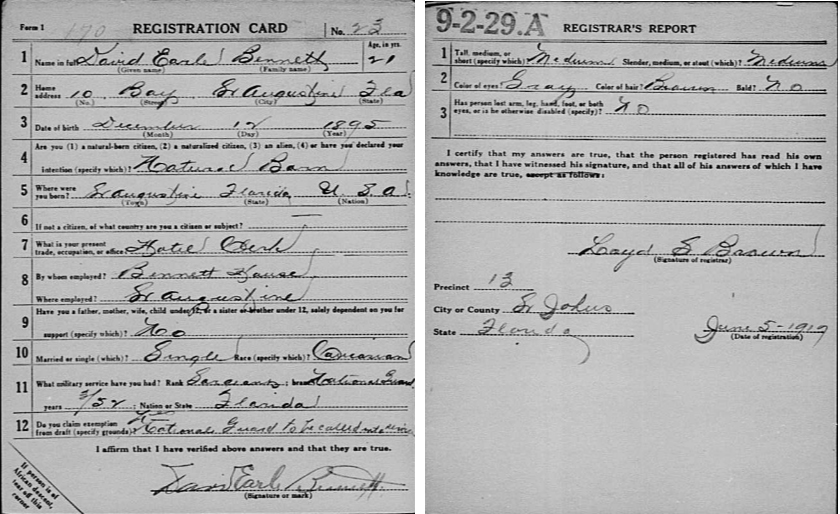 Form 1 170 REGISTRATION CARD No. 23
1 Name in full David Earle Bennett Age, in yrs. 21
(Given name) (Family name)
2 Home address 10 Bay St Augustine Fla
(No.) (Street) (City) (State)
3 Date of birth December 12 1895
(Month) (Day) (Year)
4 Are you (1) a natural-born citizen, (2) a naturalized citizen, (3) an alien, (4) or have you declared your
intention (specify which)? Natural Born
5 Where were you born? St Augustine Florida U.S.A.
(Town) (State) (Nation)
6 If not a citizen, of what country are you a citizen or subject?
7 What is your present trade, occupation, or office? Hotel Clerk
8 By whom employed? Bennett House
Where employed? St Augustine
9 Have you a father, mother, wife, child under 12, or a sister or brother under 12, solely dependent on you for
support (specify which)? No
10 Married or single (which)? Single Race (specify which)? Caucasian
11 What military service have you had? Rank ; branch National Guard
years ; Nation or State Florida
12 Do you claim exemption from draft (specify grounds)? National Guard to be called
I affirm that I have verified above answers and that they are true.
David Earle Bennett
(Signature or mark)
If person is of African descent, tear off this corner
9-2-29.A REGISTRAR'S REPORT
1 Tall, medium, or short (specify which)? Medium Slender, medium, or stout (which)? Medium
2 Color of eyes? Gray Color of hair? Brown Bald? No
3 Has person lost arm, leg, hand, foot, or both eyes, or is he otherwise disabled (specify)? No
I certify that my answers are true, that the person registered has read his own
answers, that I have witnessed his signature, and that all of his answers of which I have
knowledge are true, except as follows:
Loyd G Brown
(Signature of registrar)
Precinct 13
City or County St Johns
State Florida June 5-1917
(Date of registration)